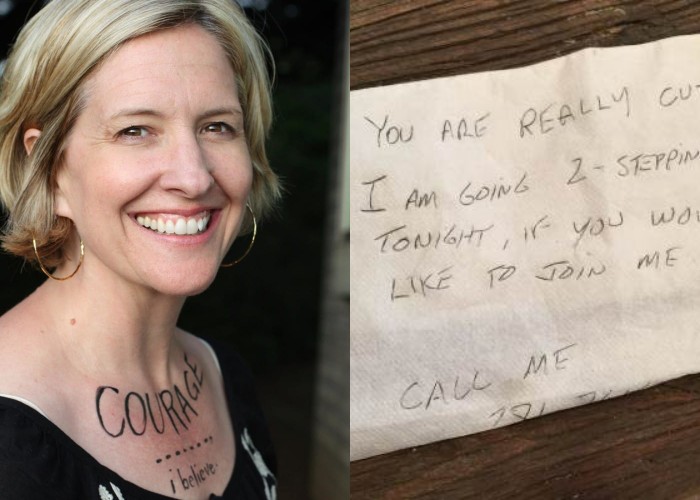 COURAGE
i believe.
YOU ARE REALLY
I AM GOING 2-STEPPIN
TONIGHT, IF YOU
LIKE TO JOIN ME
CALL ME